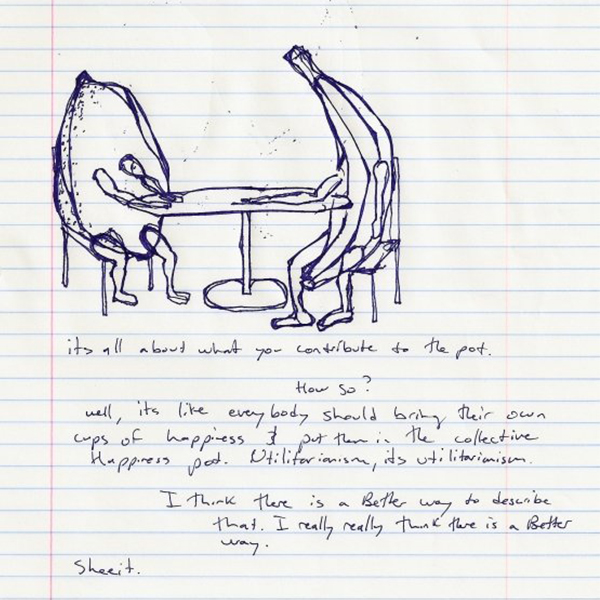 its all about what you contribute to the pot.
How so?
well, its like everybody should bring their own
cups of happiness & put them in the collective
Happiness pot. Utilitarianism, its utilitarianism.
I think there is a Better way to describe
that. I really really think there is a Better
way.
Sheeit.